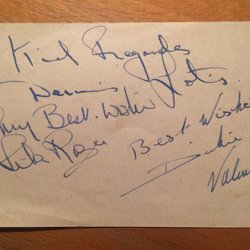 Kind Regards
Dennis Lotis
My Best Wishes
Lita Roza
Best Wishes
Dickie
Valentine